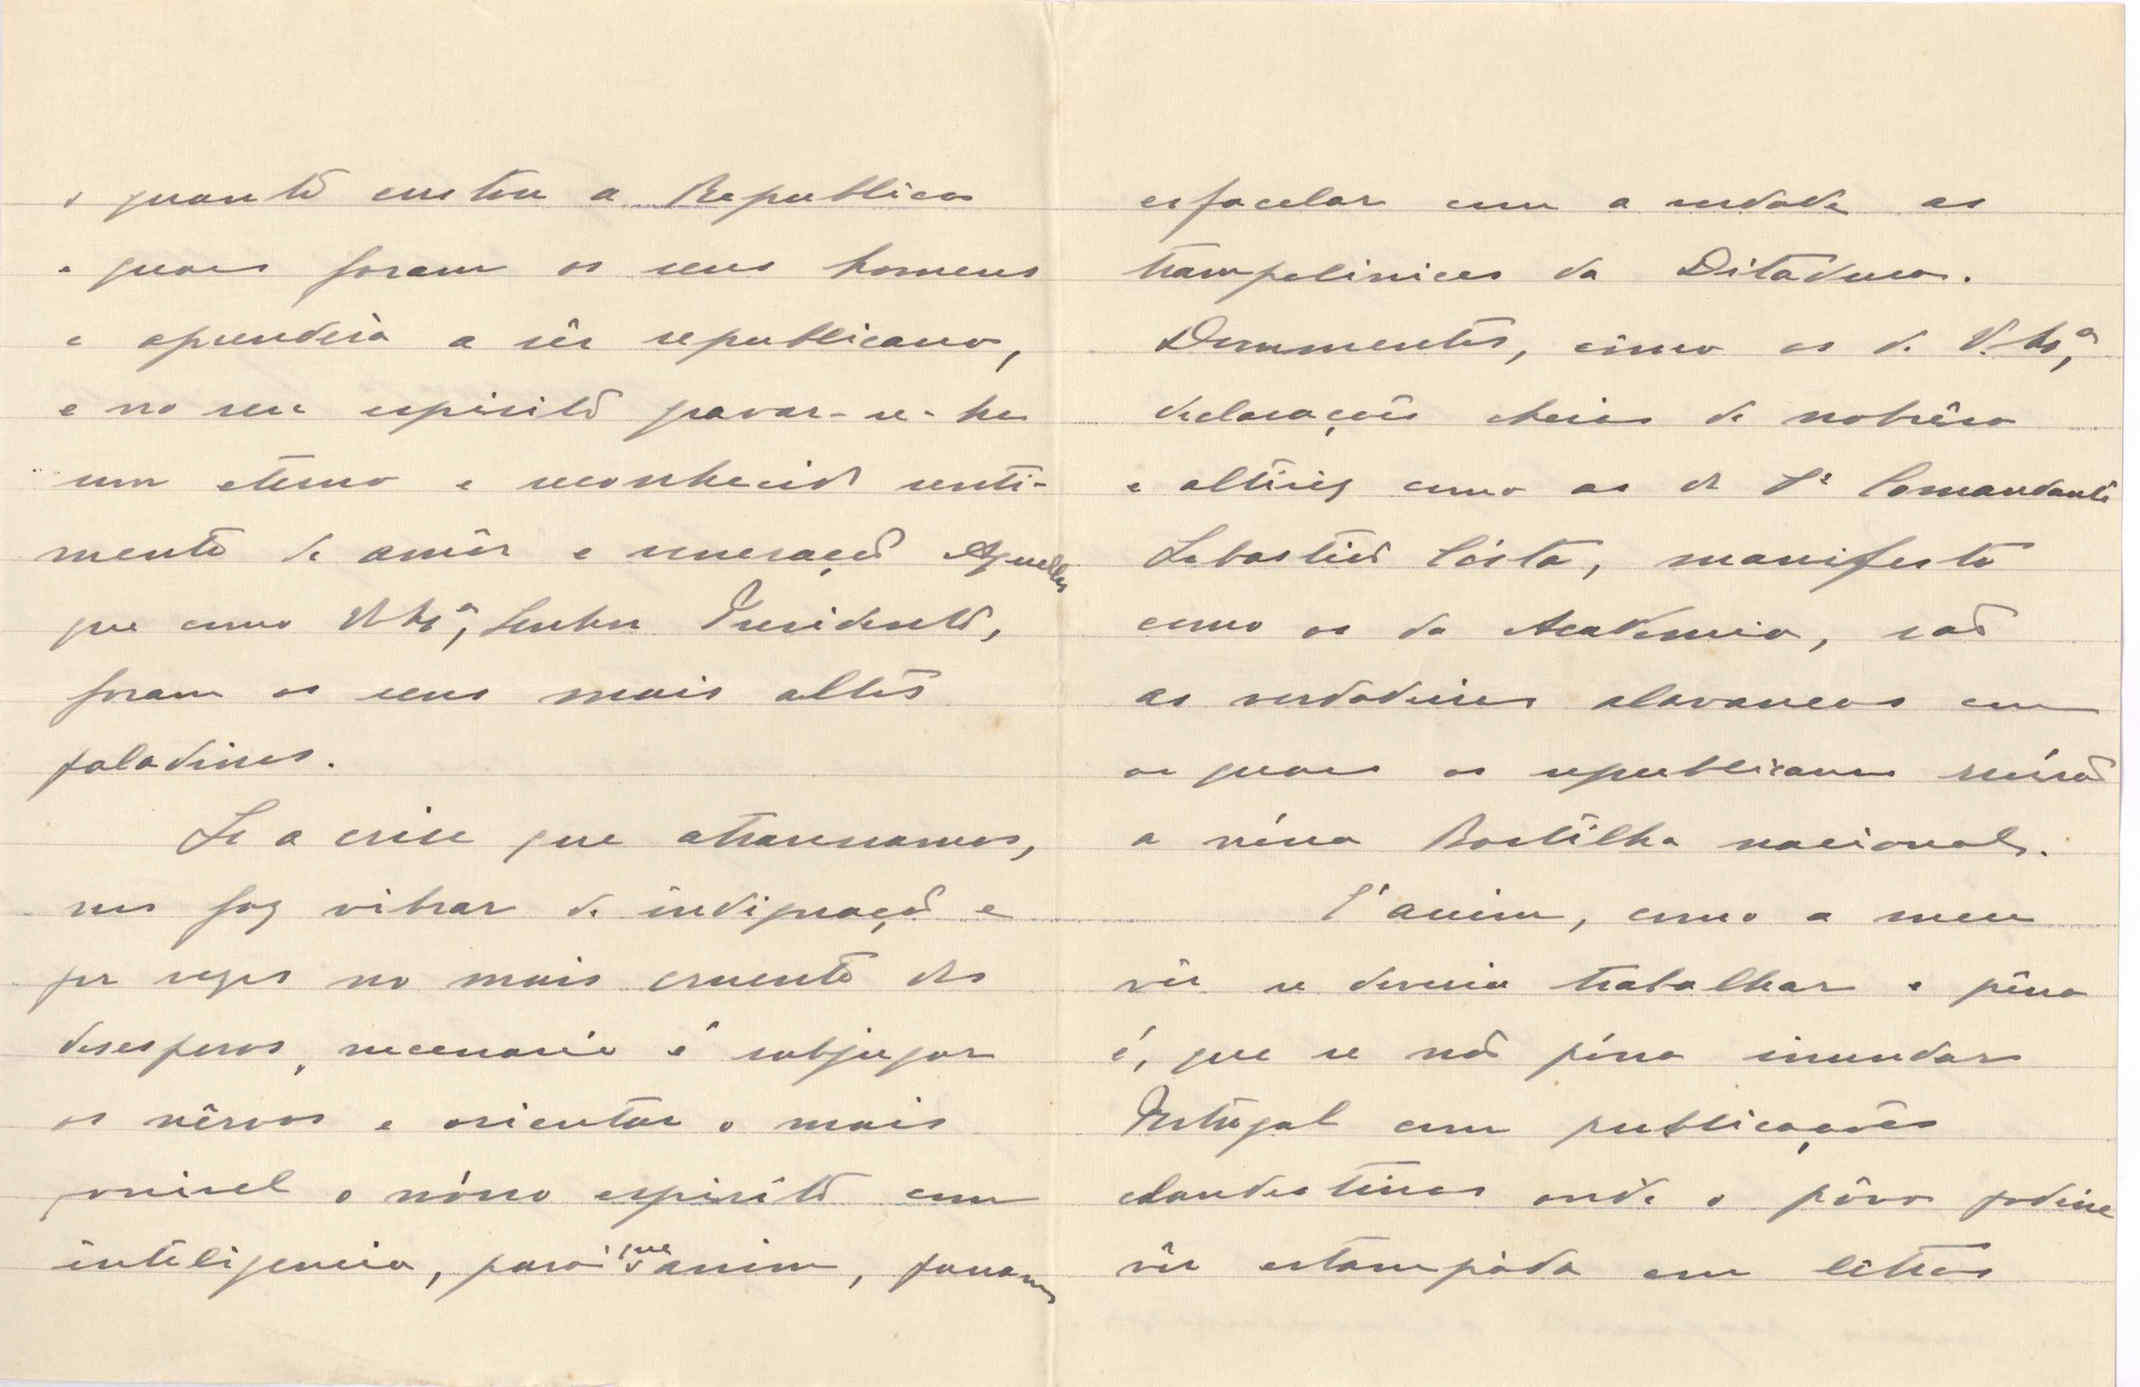 o quanto custou a Republica
e quais foram os seus homens
e aprenderá a sêr republicano,
e no seu espirito gravar-se-ha
um eterno e reconhecido senti-
mento de amôr e veneração Aquelles
que como V. Ex.ª, Senhor Presidente,
foram os seus mais altos
paladinos.
Se a crise que atravessamos,
nos faz vibrar de indignação e
por vezes no mais cruento dos
desesperos, necessario é subjugar
os nêrvos e orientar o mais
possivel o nósso espirito com
inteligencia, para que assim, possamos
esfacelar com a verdade as
trampolinices da Ditadura.
Documentos, cômo os de V. Ex.ª,
declarações cheias de nobrêsa
e altivez como as do Comandante
Sebastião Cósta, manifesto
como os da Academia, são
as verdadeiras alavancas com
as quais os republicanos
a nóssa Bastilha nacional.
É assim, como a meu
vêr se deveria trabalhar e pêna
é, que se não póssa inundar
Portugal com publicações
clandestinas onde o pôvo podesse
vêr estampáda em letras